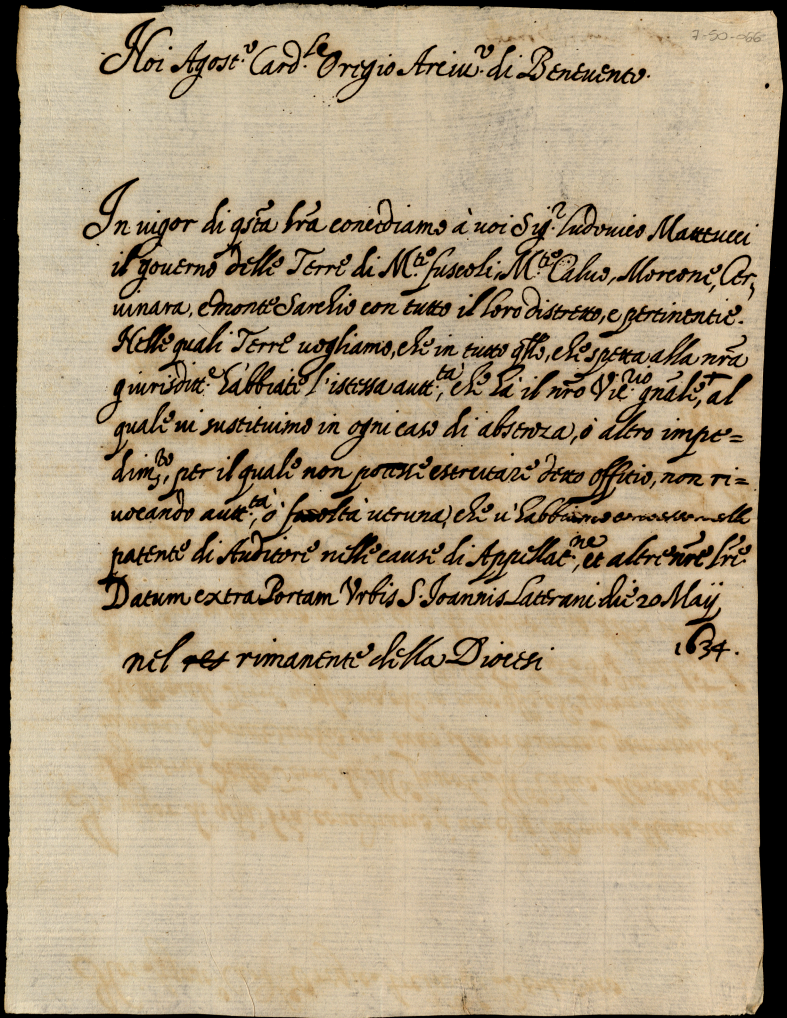 7-50-066
Noi Agost.º Card.le Oregio Arciu.º di Beneuento.
In uigor di qsta lra concediamo à uoi Sig.r Ludouico Matteucci
il gouerno delle Terre di M.te fuscoli, M.te Caluo, Morcone, Cer,,
uinara, e monte Sarchio con tutto il loro distretto, e pertinentie.
Nelle quali Terre uogliamo, che in tutto qllo, che spetta alla nra
giurisditt.e habbiate l'istessa autt.tà, che hà il nro Vic.rio gnãle, al
quale ui sustituimo in ogni caso di absenza, ò altro impe=
dim.to, per il quale non potesse esercitare detto offitio, non ri=
uocando autt.tà, ò facoltà ueruna, che u'habbiamo concesso nelle
patente di Auditore nelle cause di Appellat.ne, et altre nre lre.
Datum extra Portam Vrbis S. Joannis Laterani die 20 Maij
1634.
nel res rimanente della Diocesi